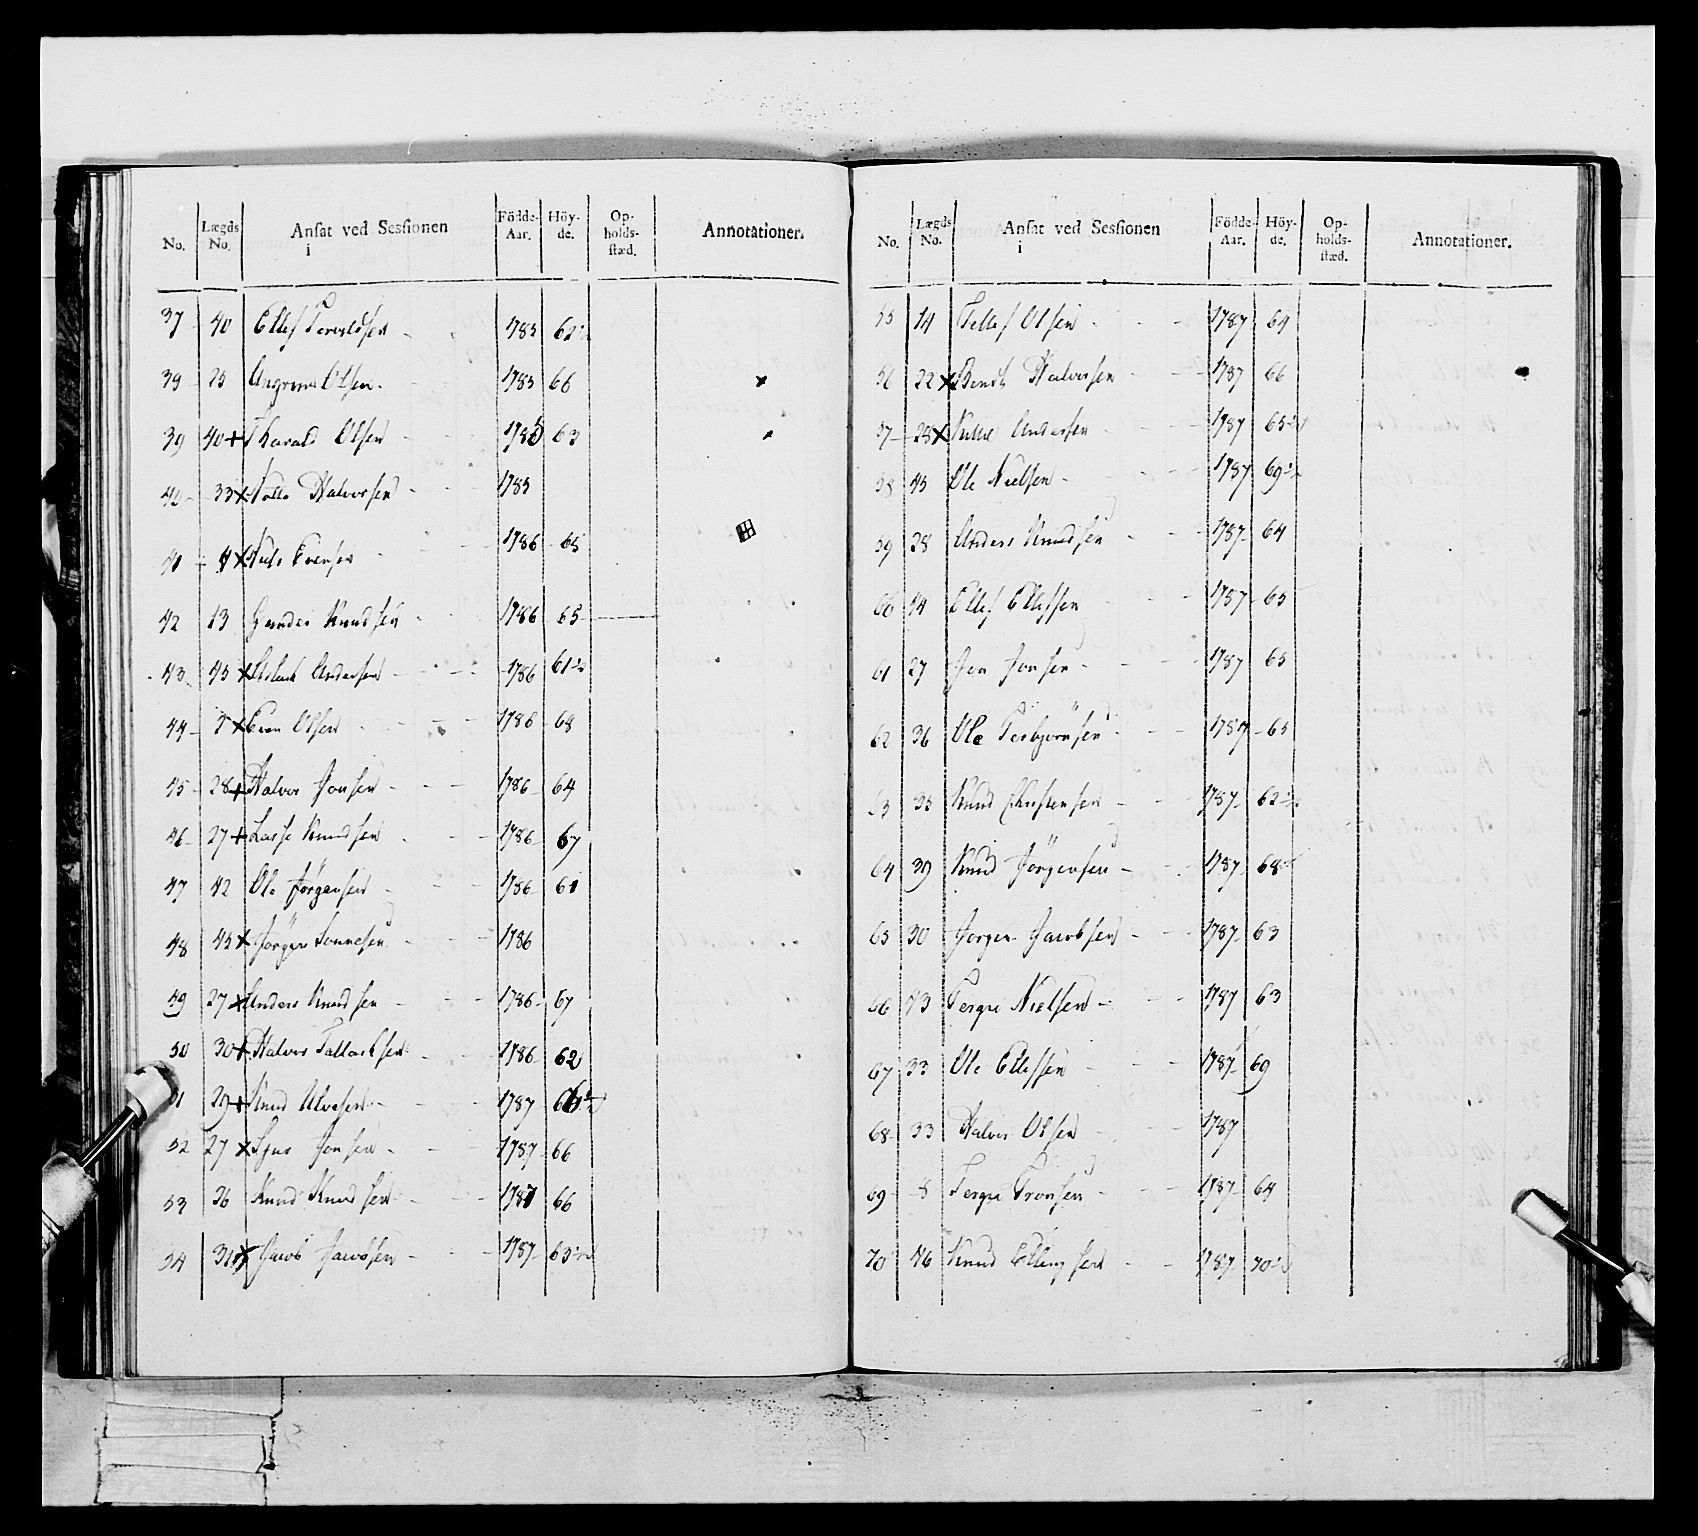 No. Lægds No. Ansat ved Sessionen i Födde-Aar. Höy-de. Op-holds-stæd. Annotationer.
37 40 Ellef 1785 62½
39 25 Olsen 1785 66 x
39 40 + Harald Olsen 1785 63 x
40 33 x Halvorsen 1785
41 4 x Niels Evensen 1786 65
42 13 Gunder Knudsen 1786 65
43 45 x Aslach Andersen 1786 61½
44 5 x Even Olsen 1786 68
45 28 + Halvor Jonsen 1786 64
46 27 + Lasse Knudsen 1786 67
47 42 Ole Jörgensen 1786 61
48 45 x Jörgen 1786
49 27 x Anders Knudsen 1786 67
50 30 + Halvor Tallachsen 1786 62
51 29 + Knud 1787
52 27 x Jonsen 1787 66
53 26 Knud Knudsen 1787 66
54 31 x Jacob Jacobsen 1787 63½
No. Lægds No. Ansat ved Sessionen i Födde-Aar. Höy-de. Op-holds-stæd. Annotationer.
55 14 Tellef Olsen 1787 64
56 22 x Bendt Halvorsen 1787 66
57 28 x Andersen 1787 65½
58 45 Ole Nielsen 1787 69½
59 28 Anders Knudsen 1787 64
60 14 Ellef Ellefsen 1787 65
61 27 Jon Jonsen 1787 65
62 36 Ole Torbjörnsen 1787 65
63 35 Knud Christensen 1787 62½
64 39 Knud Jörgensen 1787 68½
65 30 Jörgen Jacobsen 1787 63
66 43 Terge Nielsen 1787 63
67 33 Ole Ellefsen 1787 69
68 33 Halvor Olsen 1787
69 5 Terge Tronsen 1787 64
70 46 Knud Ellingsen 1787 70½